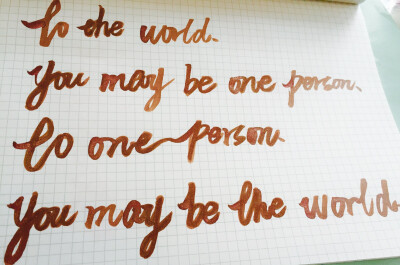 To the world.
You may be one person.
To one person
You may be the world.